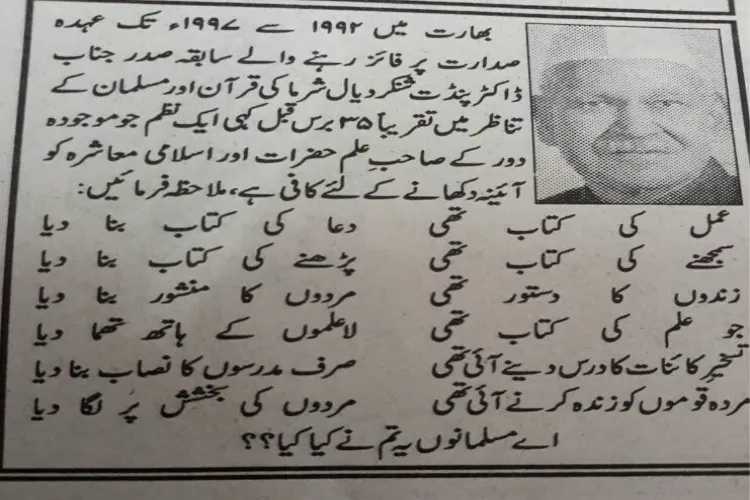 بھارت میں ۱۹۹۲ سے ۱۹۹۷ء تک عہدہ
صدارت پر فائز رہنے والے سابقہ صدر جناب
ڈاکٹر پنڈت شنکر دیال شرما کی قرآن اور مسلمان کے
تناظر میں تقریباً ۳۵ برس قبل کہی ایک نظم جو موجودہ
دور کے صاحبِ علم حضرات اور اسلامی معاشرہ کو
آئینہ دکھانے کے لئے کافی ہے، ملاحظہ فرمائیں:
عمل کی کتاب تھی دعا کی کتاب بنا دیا
سمجھنے کی کتاب تھی پڑھنے کی کتاب بنا دیا
زندوں کا دستور تھی مردوں کا منشور بنا دیا
جو علم کی کتاب تھی لاعلموں کے ہاتھ تھما دیا
تسخیرِ کائنات کا درس دینے آئی تھی صرف مدرسوں کا نصاب بنا دیا
مردہ قوموں کو زندہ کرنے آئی تھی مردوں کی بخشش پر لگا دیا
اے مسلمانوں یہ تم نے کیا کیا؟؟